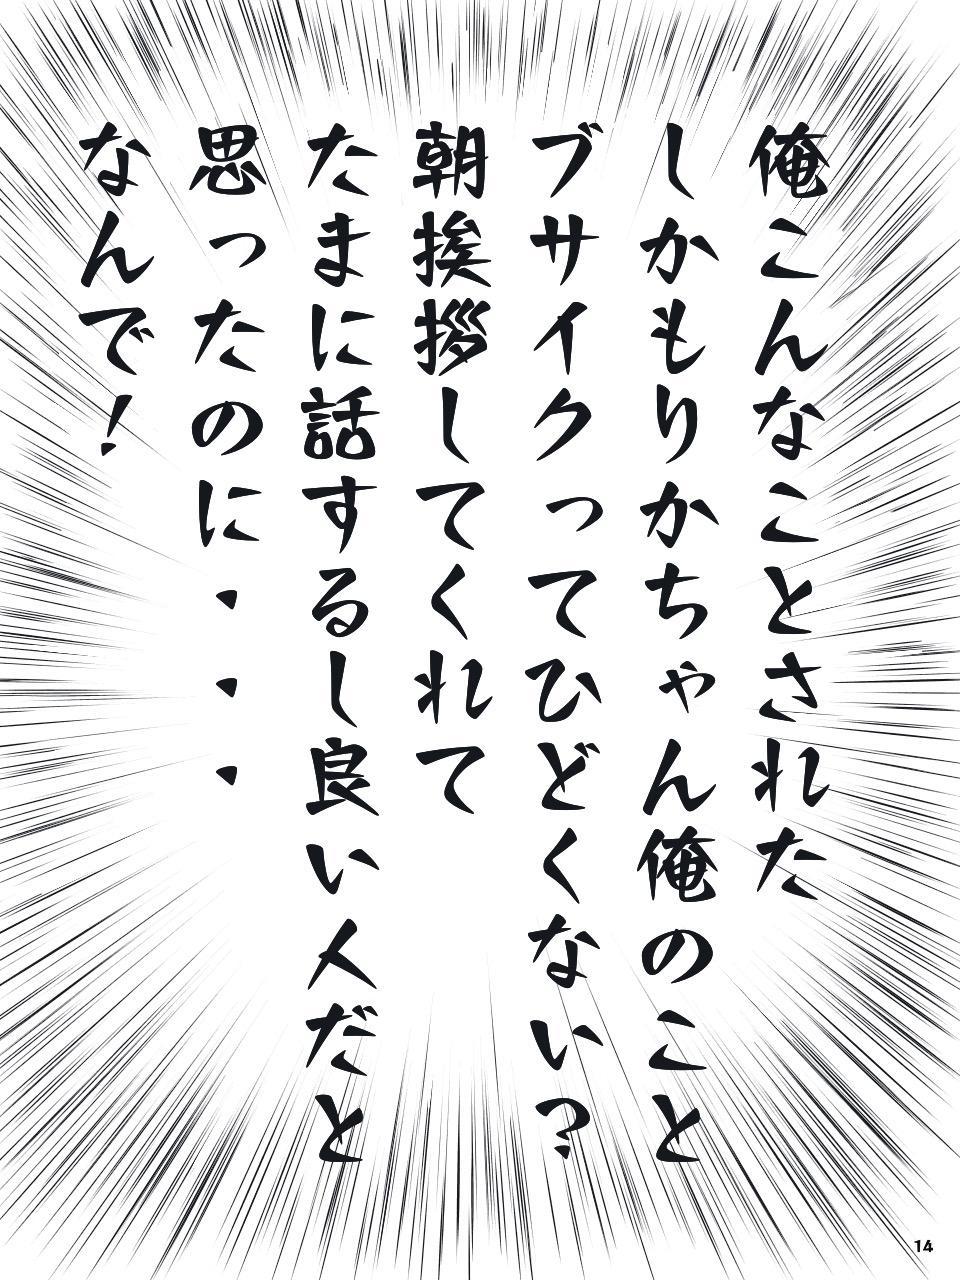 俺こんなことされた
しかもりかちゃん俺のこと
ブサイクってひどくない?
朝挨拶してくれて
たまに話するし良い人だと
思ったのに・・・
なんで!
14